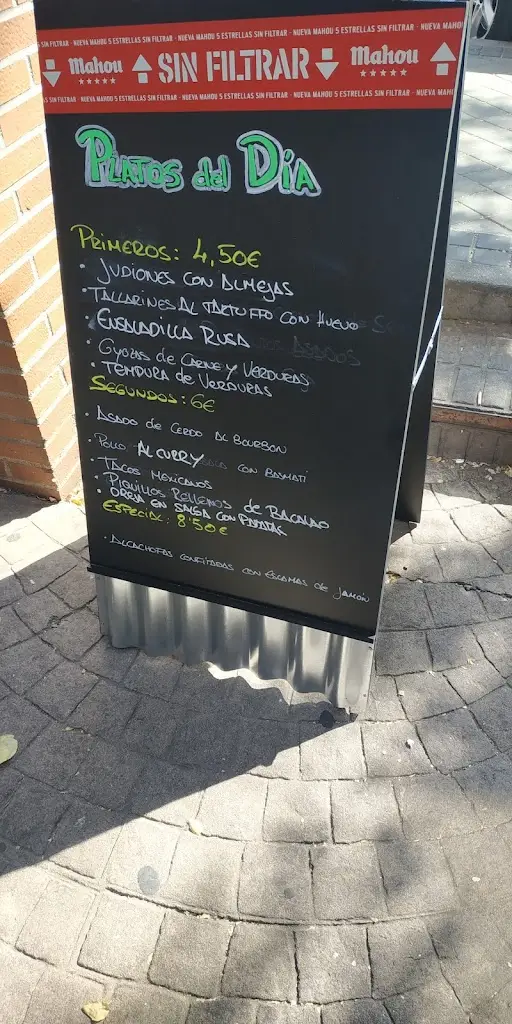 SIN FILTRAR - NUEVA MAHOU 5 ESTRELLAS SIN FILTRAR - NUEVA MAHOU 5 ESTRELLAS SIN FILTRAR - NUEVA MAHOU 5 ESTRELLAS SIN FILTRAR - NUEVA MAHOU
Mahou SIN FILTRAR Mahou
SIN FILTRAR - NUEVA MAHOU 5 ESTRELLAS SIN FILTRAR - NUEVA MAHOU 5 ESTRELLAS SIN FILTRAR - NUEVA MAHOU 5 ESTRELLAS SIN FILTRAR - NUEVA MAHOU
PLATOS del DIA
PRIMEROS: 4,50€
• JUDIONES CON ALMEJAS
• TALLARINES AL TARTUFFO CON HUEVO
• ENSALADILLA RUSA
• GYOZAS de CARNE Y VERDURAS
• TEMPURA de VERDURAS
SEGUNDOS: 6€
• ASADO de CERDO AL BOURBON
POLLO AL CURRY CON BASMATI
• TACOS MEXICANOS
• PIQUILLOS RELLENOS de BACALAO
• OREJA EN SALSA CON PATATAS
ESPECIAL: 8'50€
• ALCACHOFAS CONFITADAS CON ESCAMAS DE JAMON